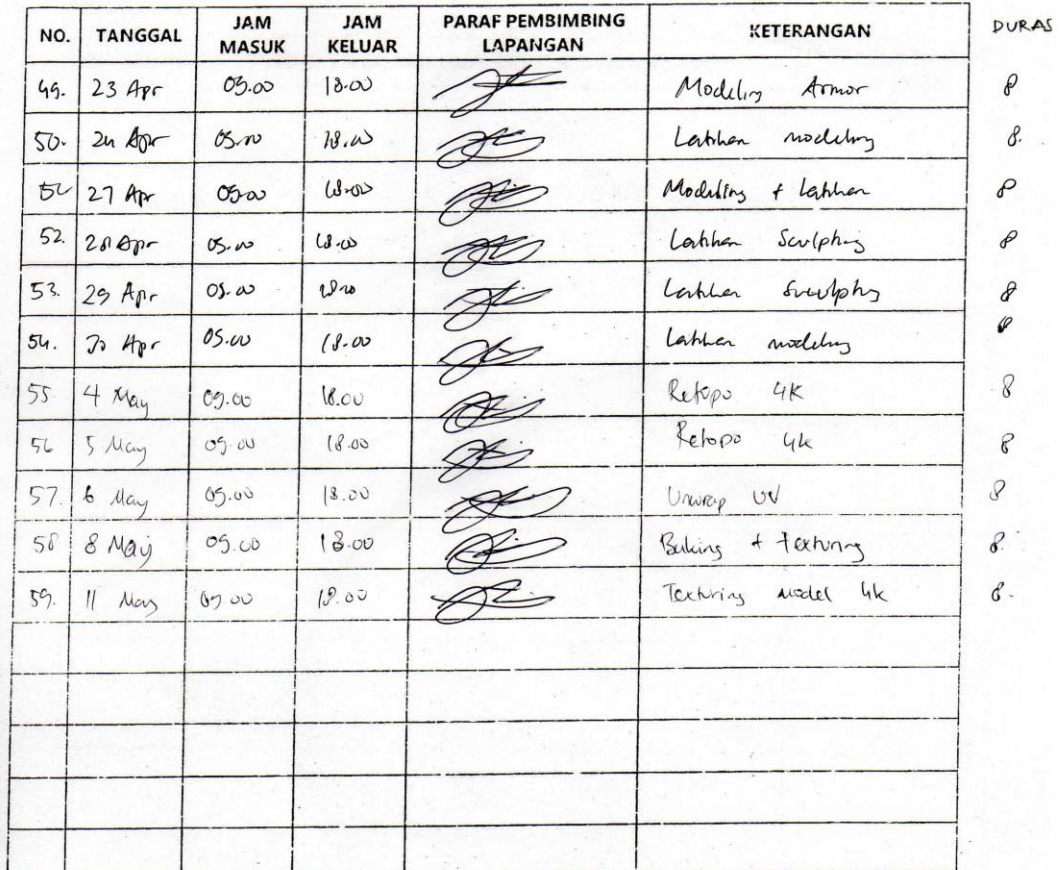 NO. TANGGAL JAM MASUK JAM KELUAR PARAF PEMBIMBING LAPANGAN KETERANGAN DURAS
49. 23 Apr 09.00 18.00 Modeling Armor 8
50. 24 Apr 09.00 18.00 Latihan modeling 8.
51 27 Apr 09.00 18.00 Modeling + Latihan 8
52. 28 Apr 09.00 18.00 Latihan Sculpting 8
53. 29 Apr 09.00 18.00 Latihan Sculpting 8
54. 30 Apr 09.00 18.00 Latihan modeling 8
55 4 May 09.00 18.00 Retopo 4K 8
56 5 May 09.00 18.00 Retopo 4k 8
57. 6 May 09.00 18.00 Unwrap UV 8
58 8 May 09.00 18.00 Baking + Texturing 8.
59. 11 May 09.00 18.00 Texturing model 4k 8.